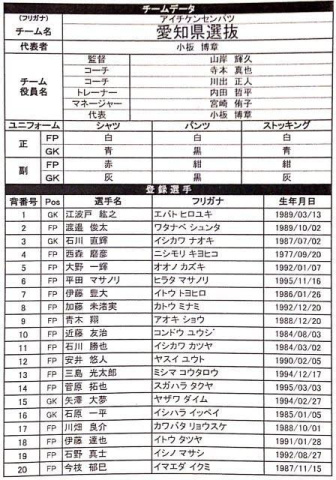 チームデータ
(フリガナ) アイチケンセンバツ
チーム名 愛知県選抜
代表者 小板 博章
チーム役員名
監督 山岸 輝久
コーチ 寺本 真也
コーチ 川出 正人
トレーナー 内田 哲平
マネージャー 宮崎 侑子
代表 小板 博章
ユニフォーム シャツ パンツ ストッキング
正 FP 白 白 白
GK 青 黒 青
副 FP 赤 紺 紺
GK 灰 黒 灰
登録選手
背番号 Pos 選手名 フリガナ 生年月日
1 GK 江波戸 紘之 エバト ヒロユキ 1989/03/13
2 FP 渡邉 俊太 ワタナベ シュンタ 1989/10/02
3 GK 石川 直輝 イシカワ ナオキ 1987/07/02
4 FP 西森 磨彦 ニシモリ キヨヒコ 1977/09/20
5 FP 大野 一輝 オオノ カズキ 1992/01/07
6 FP 平田 マサノリ ヒラタ マサノリ 1995/11/16
7 FP 伊藤 豊大 イトウ トヨヒロ 1986/01/26
8 FP 加藤 未渚実 カトウ ミナミ 1992/12/20
9 FP 青木 翔 アオキ ショウ 1988/12/20
10 FP 近藤 友治 コンドウ ユウジ 1984/08/03
11 FP 石川 勝也 イシカワ カツヤ 1984/03/02
12 FP 安井 悠人 ヤスイ ユウト 1990/02/05
13 FP 三島 光太郎 ミシマ コウタロウ 1994/12/17
14 FP 菅原 拓也 スガハラ タクヤ 1995/03/03
15 GK 矢澤 大夢 ヤザワ ダイム 1994/02/27
16 GK 石原 一平 イシハラ イッペイ 1985/01/05
17 FP 川畑 良介 カワバタ リョウスケ 1988/10/01
18 FP 伊藤 達也 イトウ タツヤ 1991/01/28
19 FP 石野 真士 イシノ マサシ 1992/08/27
20 FP 今枝 郁巳 イマエダ イクミ 1987/11/15